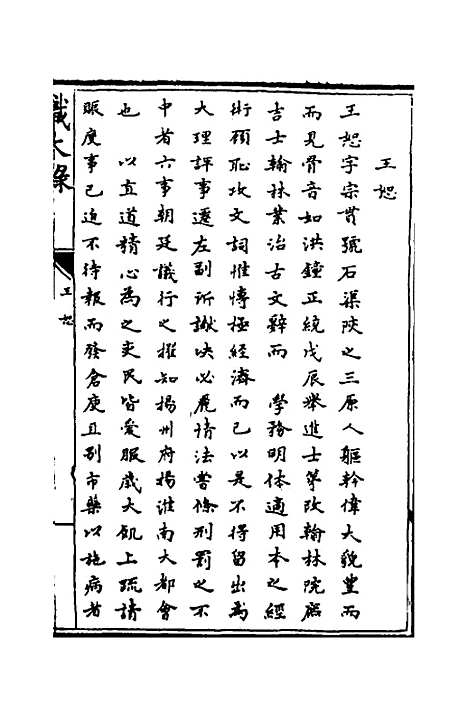 王恕
王恕字宗貫號石渠陝之三原人軀幹偉大貌豐而
而見骨音如洪鐘正統戊辰舉進士第改翰林院庶
吉士翰林業治古文辭而　學務明体適用本之經
術頋恥攻文詞惟慱極經濟而已以是不得留出為
大理評事遷左副所讞决必麗情法嘗條刑罰之不
中者六事朝廷議行之擢知揚州府揚淮南大都會
也　以直道精心為之吏民皆愛服歲大飢上疏請
賑度事已迫不待報而發倉庾且別市藥以施病者
識大錄
王恕